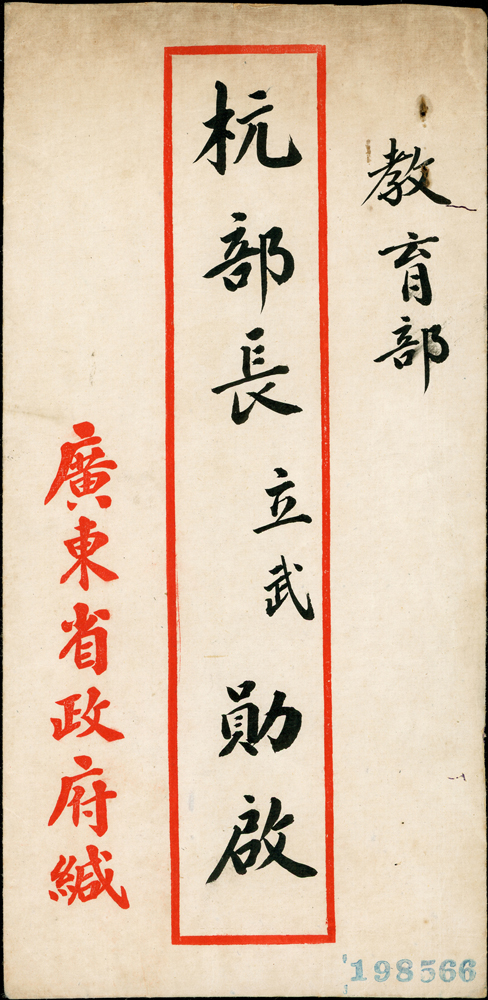 教育部
杭部長立武勛啟
廣東省政府緘
198566